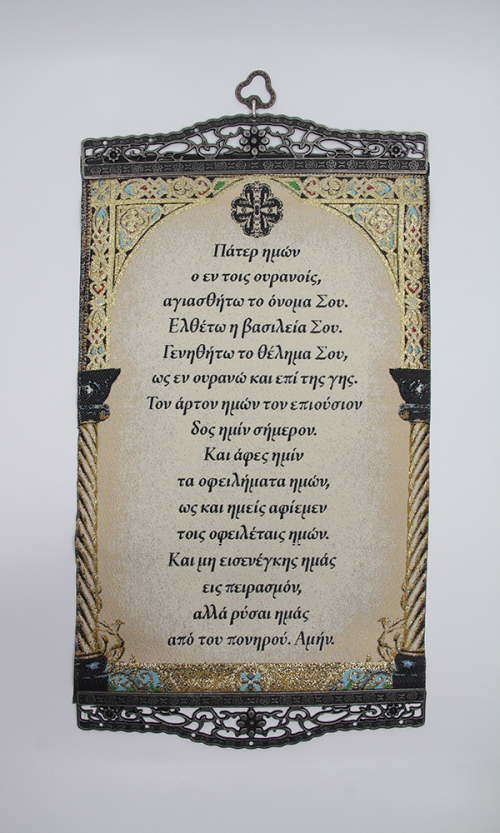 Πάτερ ημών
ο εν τοις ουρανοίς,
αγιασθήτω το όνομα Σου.
Ελθέτω η βασιλεία Σου.
Γενηθήτω το θέλημα Σου,
ως εν ουρανώ και επί της γης.
Τον άρτον ημών τον επιούσιον
δος ημίν σήμερον.
Και άφες ημίν
τα οφειλήματα ημών,
ως και ημείς αφίεμεν
τοις οφειλέταις ημών.
Και μη εισενέγκης ημάς
εις πειρασμόν,
αλλά ρύσαι ημάς
από του πονηρού. Αμήν.